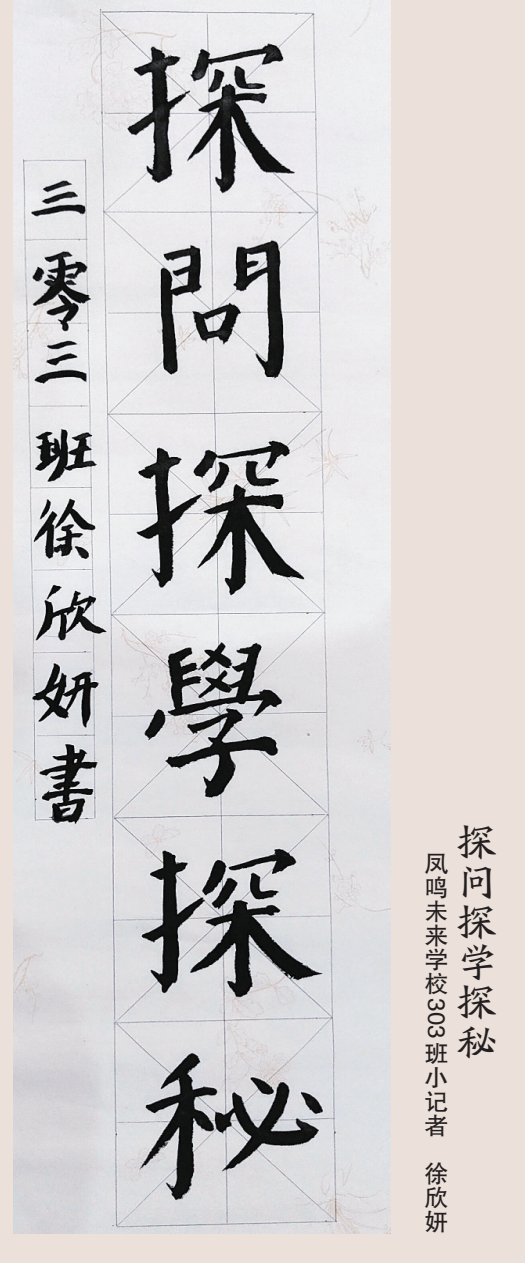 探問探學探秘
三零三班徐欣妍書
探问探学探秘
凤鸣未来学校303班小记者 徐欣妍